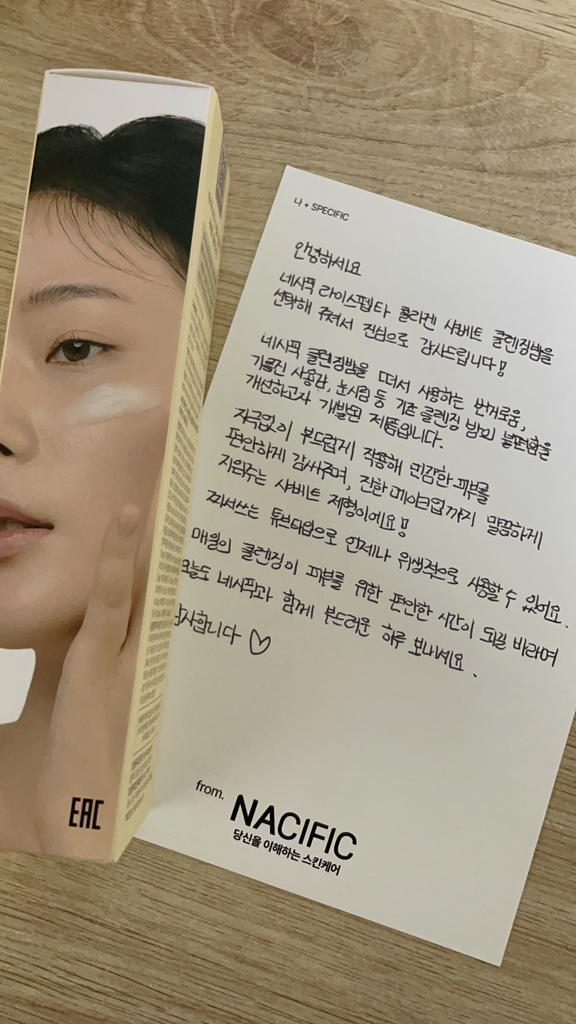 나 + SPECIFIC
안녕하세요
네시픽 라이스펩타 콜라겐 샤베트 클렌징밤을
선택해 주셔서 진심으로 감사드립니다!
네시픽 클렌징밤을 떠서 사용하는 번거로움,
기름진 사용감, 눈시림 등 기존 클렌징 밤의 불편함을
개선하고자 개발된 제품입니다.
자극없이 부드럽게 작용해 민감한 피부를
편안하게 감싸주며, 진한 메이크업까지 말끔하게
지워주는 샤베트 제형이에요!
짜서쓰는 튜브타입으로 언제나 위생적으로 사용할 수 있어요.
매일의 클렌징이 피부를 위한 편안한 시간이 되길 바라며
오늘도 네시픽과 함께 부드러운 하루 보내세요.
감사합니다 ♡
from.
NACIFIC
당신을 이해하는 스킨케어
EAC